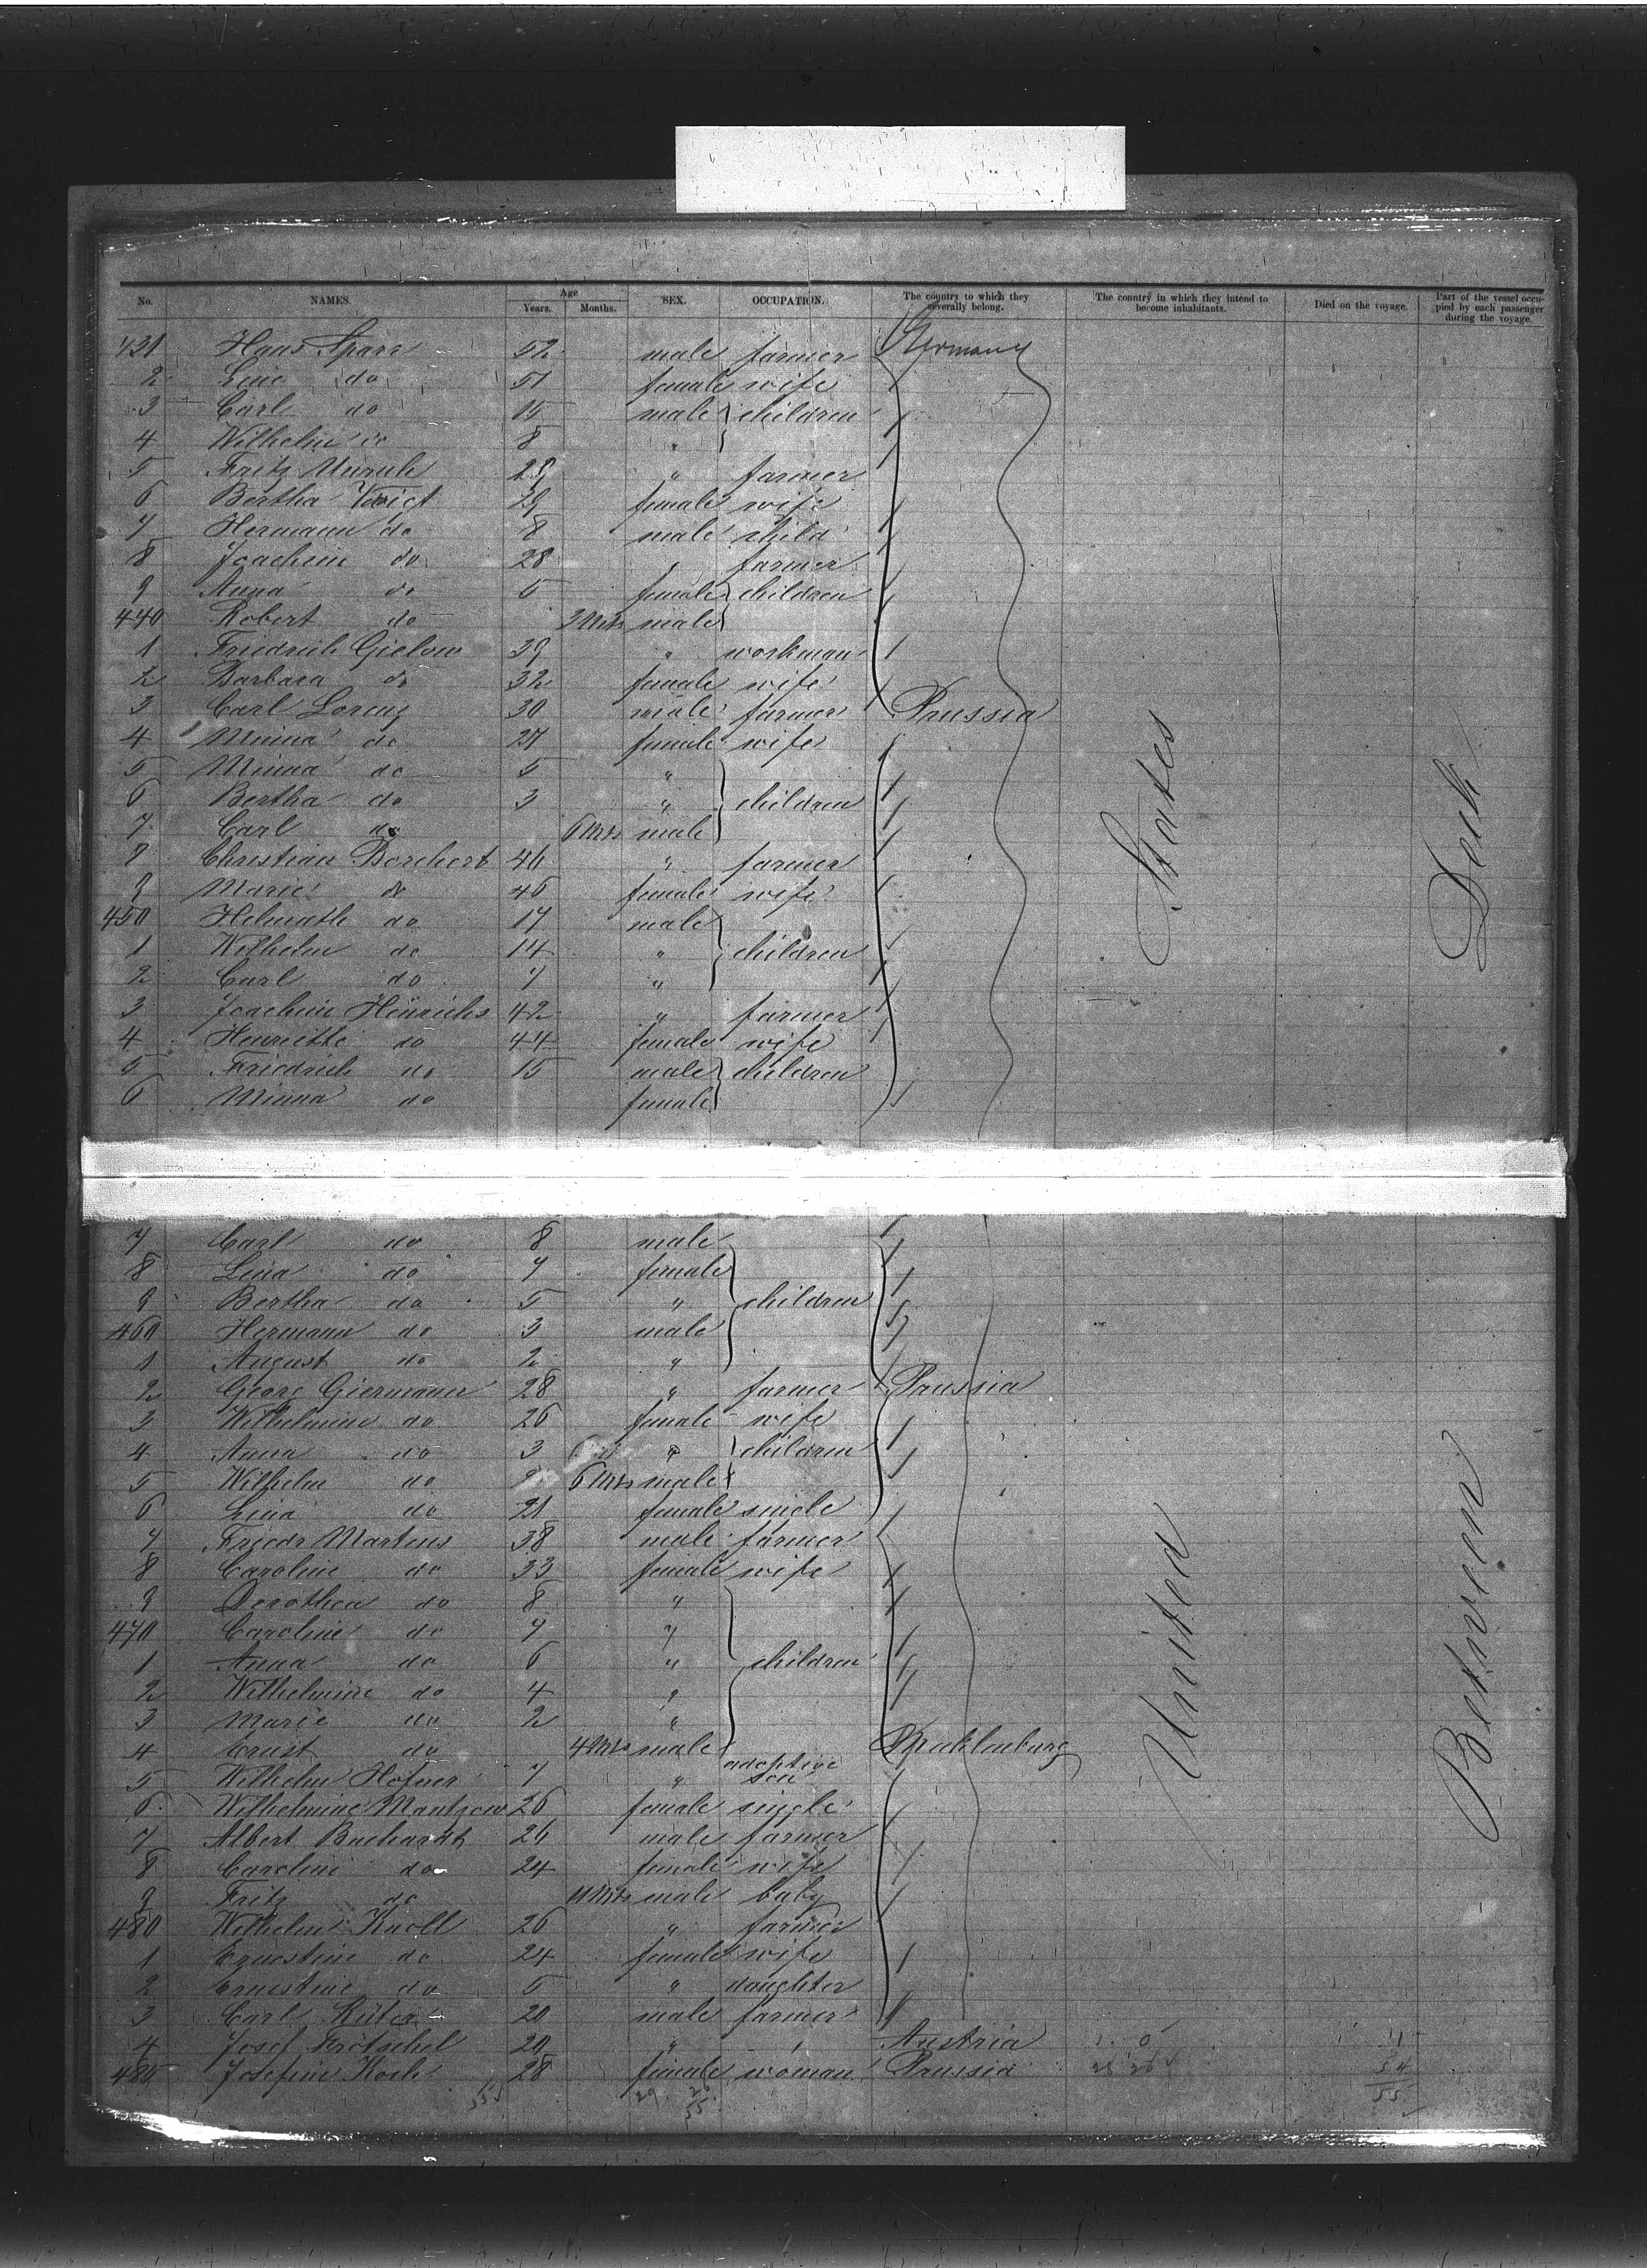 No. NAMES. Age Years. Months. SEX. OCCUPATION. The country to which they severally belong. The country in which they intend to become inhabitants. Died on the voyage. Part of the vessel occupied by each passenger during the voyage.
431 Hans Sparr 52 male farmer Germany
2 Line do 51 female wife
3 Carl do 15 male children
4 Wilhelm do 8 "
5 Fritz 29 " farmer
6 Bertha Voigt 29 female wife
7 Hermann do 8 male child
8 Joachim do 28 " farmer
9 Anna do 5 female children
440 Robert do 3 Mts male
1 Friedrich Gielow 39 " workman
2 Barbara do 32 female wife
3 Carl Lorenz 30 male farmer Prussia
4 Minna do 27 female wife
5 Minna do 5 "
6 Bertha do 3 " children
7 Carl do 6 Mts male
8 Christian Borchert 46 " farmer
9 Marie do 46 female wife
450 Helmuth do 17 male
1 Wilhelm do 14 " children
2 Carl do 7 "
3 Joachim Hinrichs 42 " farmer
4 Henriette do 44 female wife
5 Friedrich do 15 male children
6 Minna do female
7 Carl do 8 male
8 Lina do 7 female
9 Bertha do 5 " children
460 Hermann do 3 male
1 August do 2 "
2 Georg Giermann 28 " farmer Prussia
3 Wilhelmine do 26 female wife
4 Anna do 3 " children
5 Wilhelm do 6 Mts male
6 Lina do 21 female single
7 Friedr Martens 38 male farmer
8 Caroline do 33 female wife
9 Dorothea do 8 "
470 Caroline do 7 "
1 Anna do 6 " children
2 Wilhelmine do 4 "
3 Marie do 2 "
4 Ernst do 4 Mts male Mecklenburg
5 Wilhelm Hofner 7 " adoptive son
6 Wilhelmine Mantzow 26 female single
7 Albert 26 male farmer
8 Caroline do 24 female wife
9 Fritz do 11 Mts male baby
480 Wilhelm Knoll 26 " farmer
1 Ernestine do 24 female wife
2 Ernestine do 5 " daughter
3 Carl Rüter 20 male farmer
4 Josef Fritschel 20 " " Austria
485 Josefine Koch 28 female woman Prussia
United States
Between Deck
29 26
55
54
55